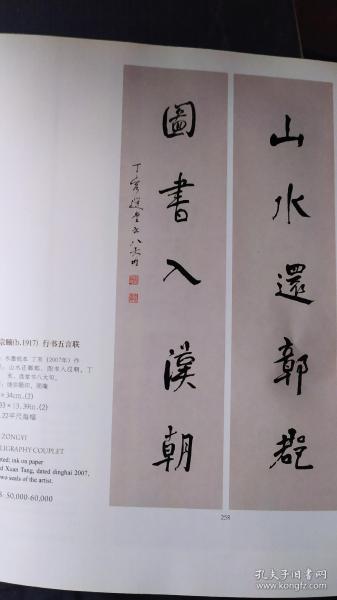 山水還鄣郡
圖書入漢朝
丁亥選堂書八大句
(b.1917) 行书五言联
水墨纸本 丁亥(2007年)作
图书入汉朝。丁
亥，选堂书八大句。
× 34cm. (2)
33 × 13.39in. (2)
.22平尺每幅
ZONGYI
LIGRAPHY COUPLET
ted: ink on paper
d Xuan Tang, dated dinghai 2007,
wo seals of the artist.
50,000-60,000
258
孔夫子旧书网